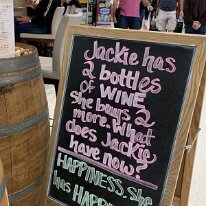 Jackie has
2 bottles
of WINE
she buys 2
more. What
does Jackie
have now?
HAPPINESS. She
has HAPP